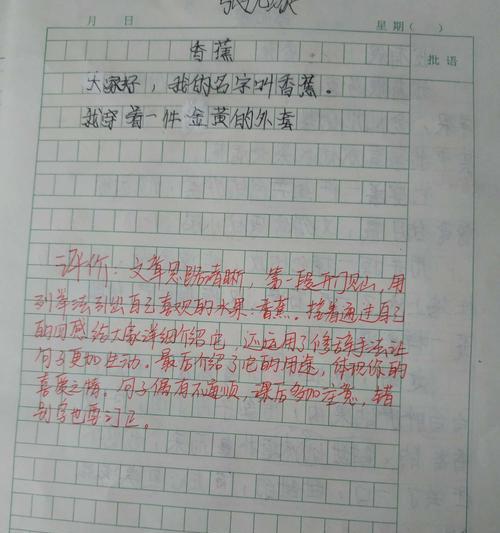 月 日 星期( )
批语
香蕉
大家好，我的名字叫香蕉。
我穿着一件金黄的外套
评价：文章思路清晰，第一段开门见山，用
列举法引出自己喜欢的水果-香蕉。接着通过自己
的口感给大家详细介绍它，还运用了修辞手法让
句子更加生动。最后介绍了它的用途，体现你的
喜爱之情。句子偶有不通顺，课后多加注意，错
别字也要订正。